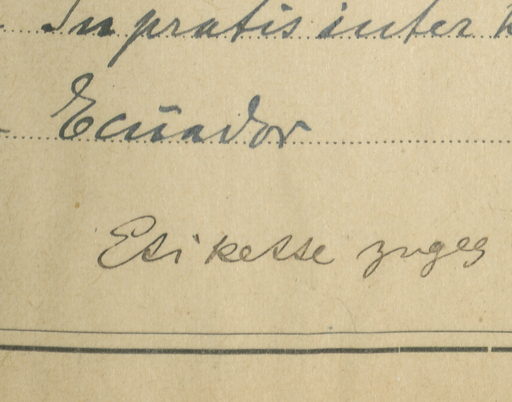 In pratis inter
Ecuador
Etikette zugeg